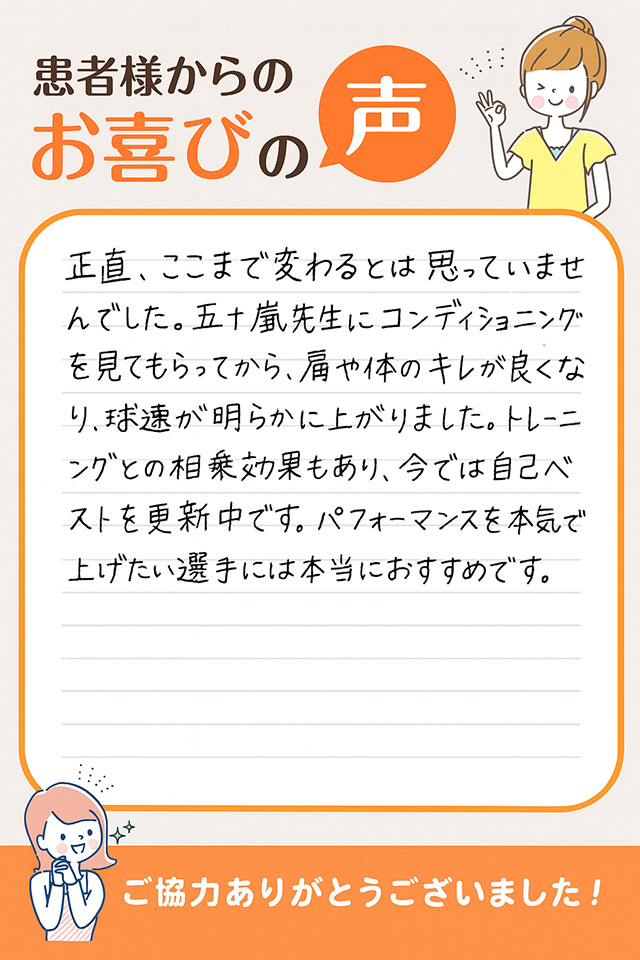 患者様からの
お喜びの声
正直、ここまで変わるとは思っていませ
んでした。五十嵐先生にコンディショニング
を見てもらってから、肩や体のキレが良くな
り、球速が明らかに上がりました。トレーニ
ングとの相乗効果もあり、今では自己ベ
ストを更新中です。パフォーマンスを本気で
上げたい選手には本当におすすめです。
ご協力ありがとうございました！